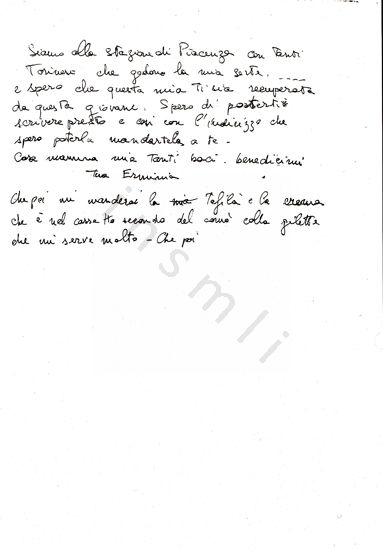 Siamo alla stazione di Piacenza con tanti
Torinesi che godono la mia sorte.
e spero che questa mia ti sia recuperata
da questa giovane. Spero di poterti
scrivere presto e così con l'indirizzo che
spero poterla mandartela a te.
Cara mamma mia tanti baci. benedicimi
Tua Erminia
Che poi mi manderai la mia Tefilà e la crema
che è nel cassetto secondo del comò colla gilette
che mi serve molto - Che poi
insmli